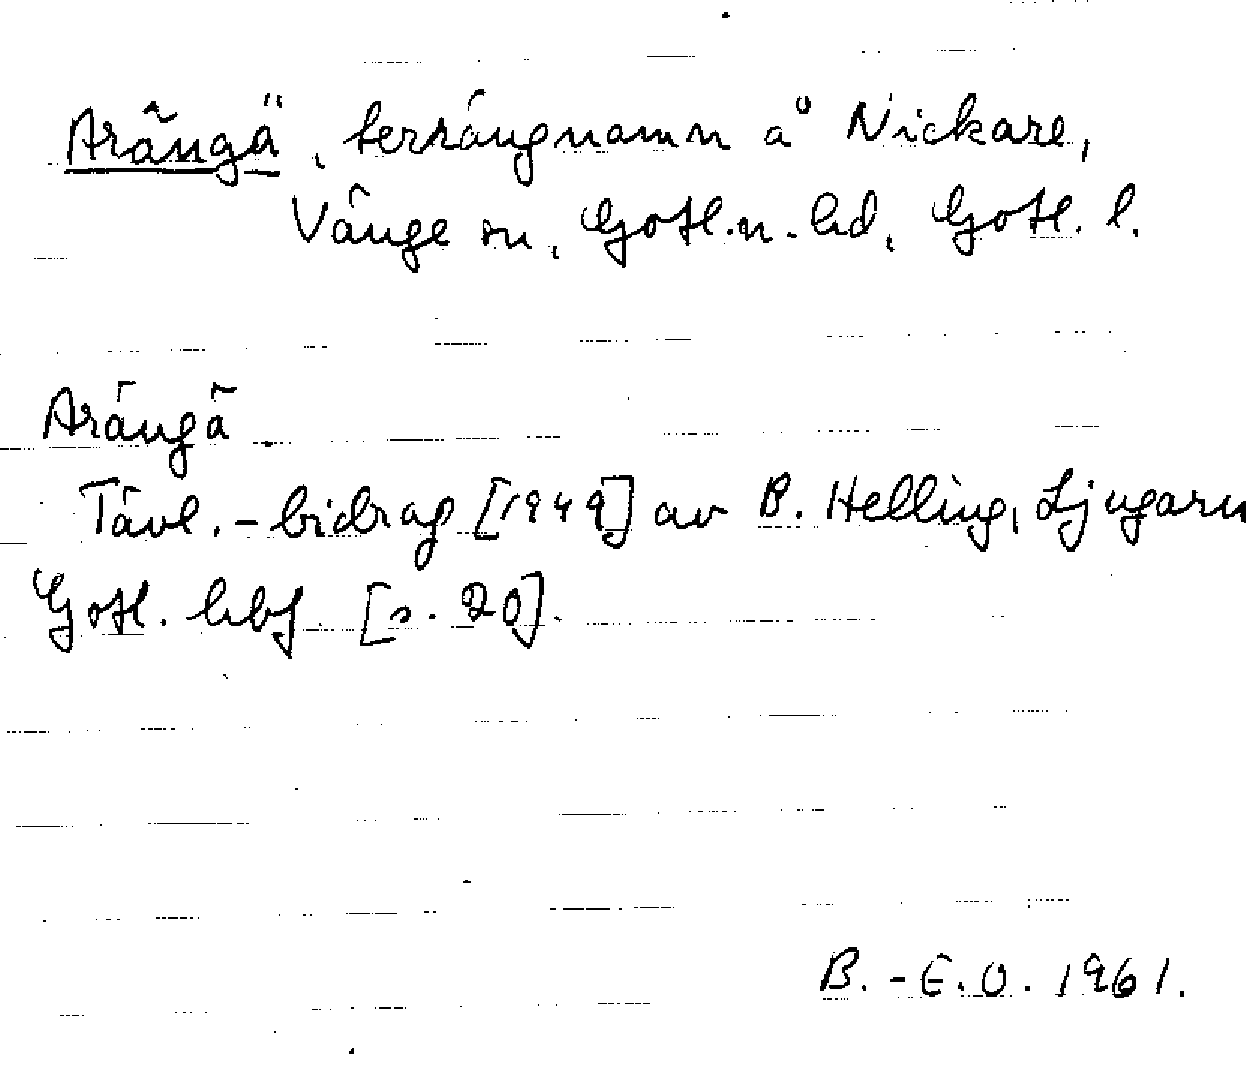 Arängä, terrängnamn å Nickare,
Vänge sn, Gotl.n. hd, Gotl. l.
Arängä
Tävl.-bidrag [1949] av B. Helling, Ljugarn
Gotl. hbf [s. 20].
B.-E.O. 1961.